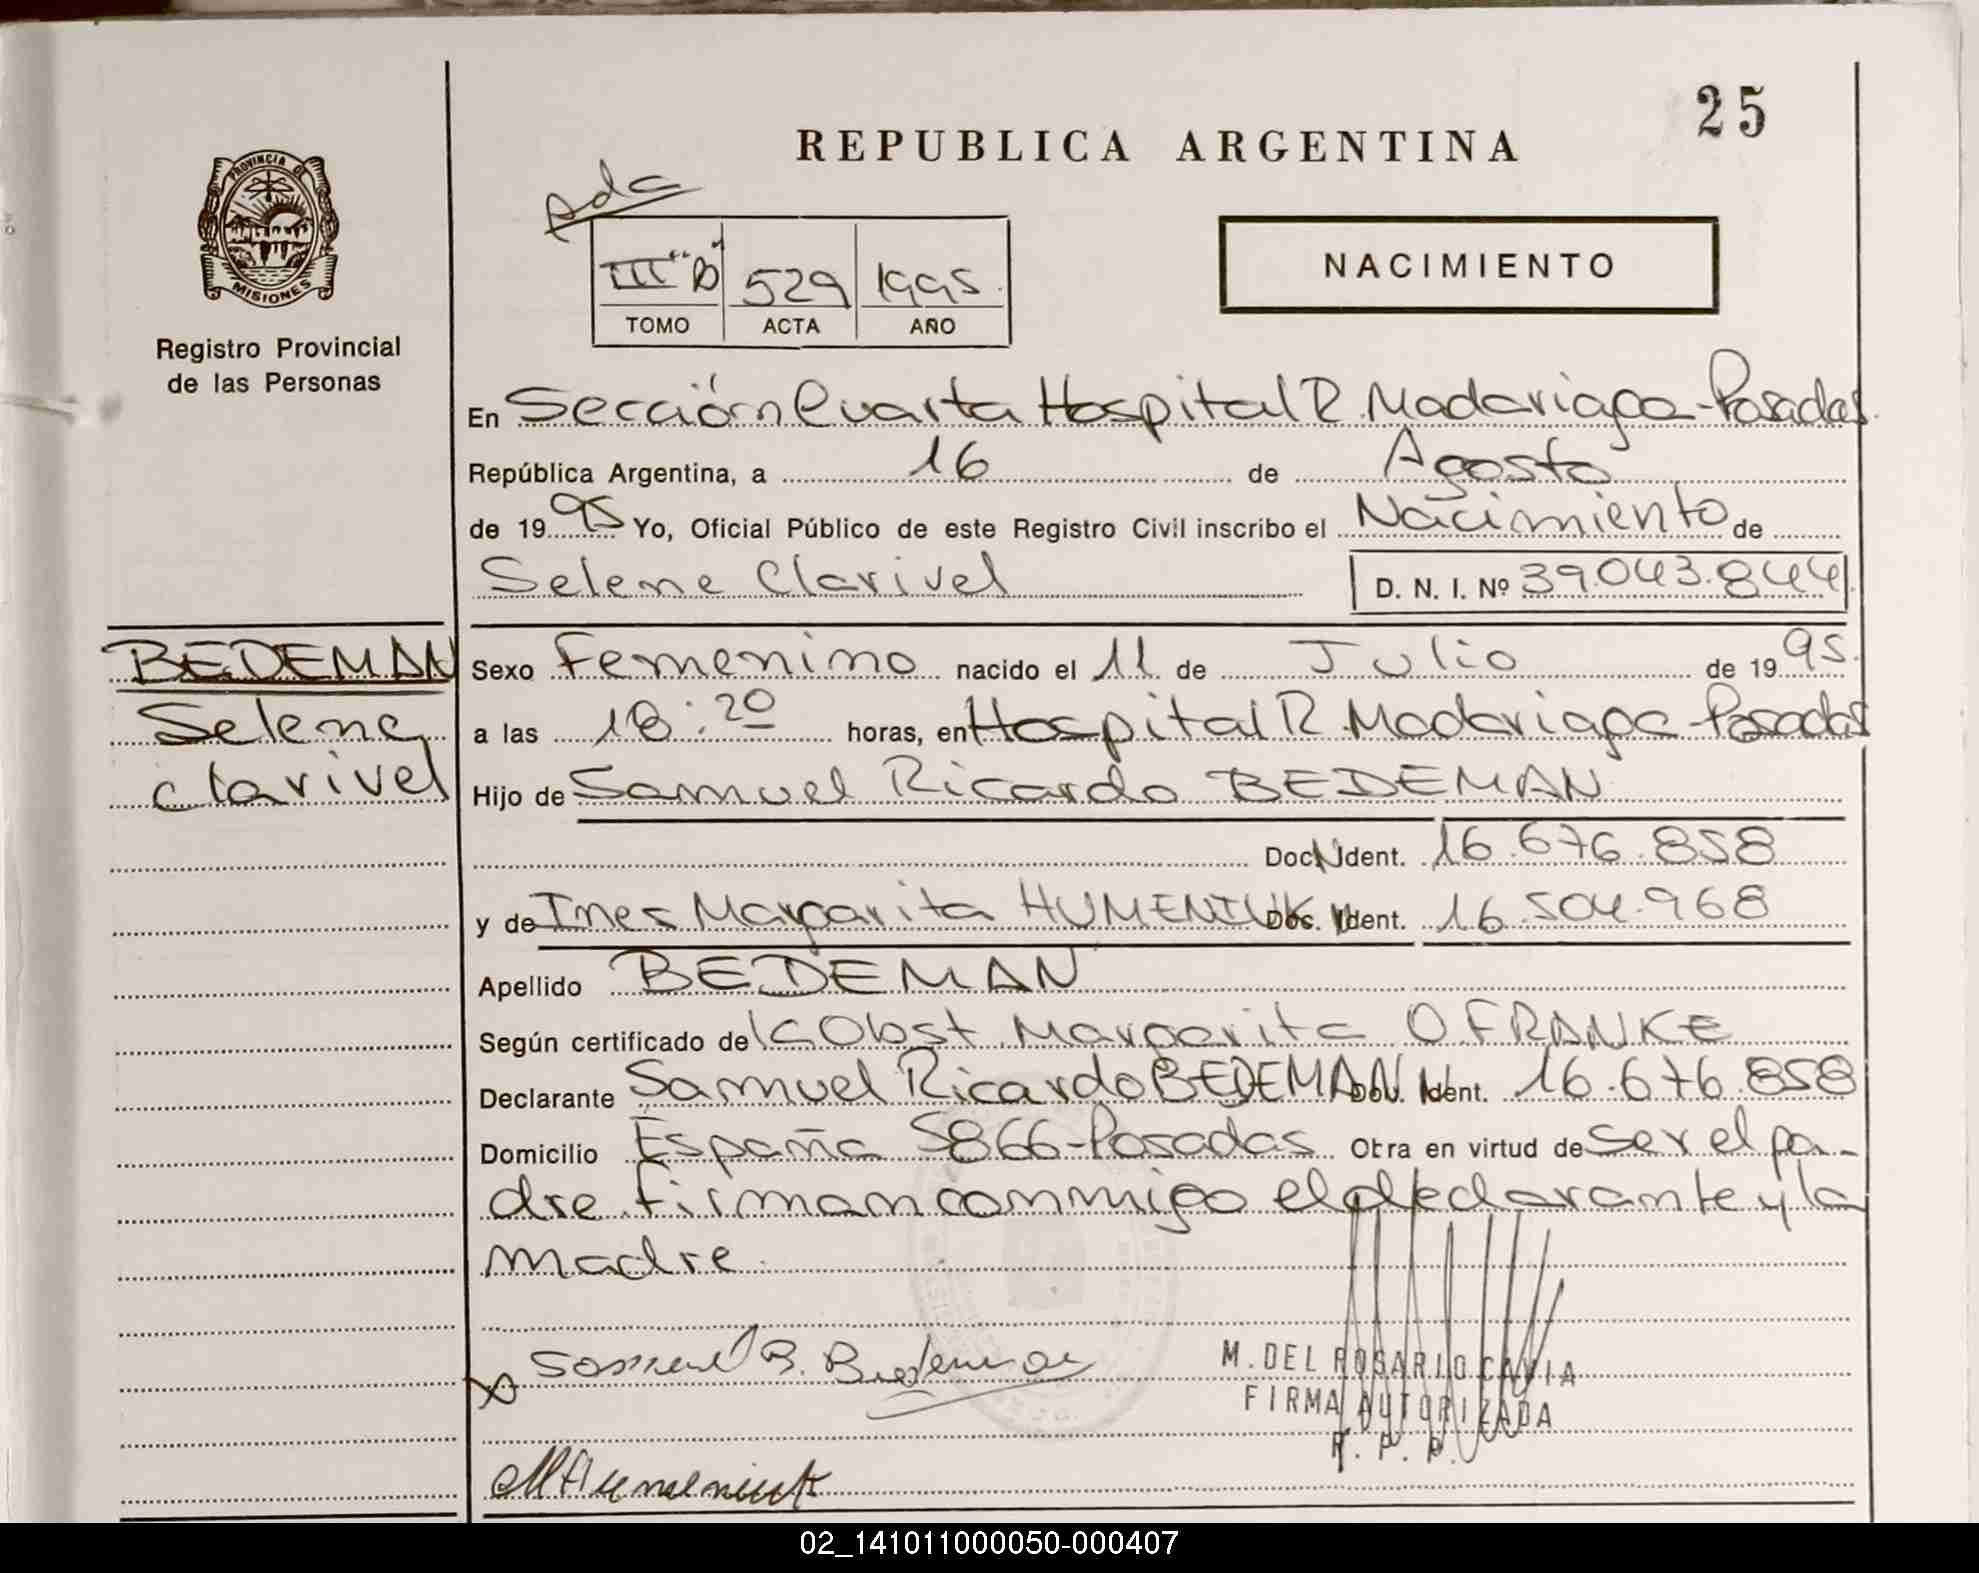 25
REPUBLICA ARGENTINA
PROVINCIA DE
MISIONES
Registro Provincial
de las Personas
Adc
III "B" 529 1995
TOMO ACTA AÑO
NACIMIENTO
En Sección Cuarta Hospital R. Madariaga - Posadas.
República Argentina, a 16 de Agosto
de 1995 Yo, Oficial Público de este Registro Civil inscribo el Nacimiento de
Selene Clarivel D. N. I. Nº 39.043.844
BEDEMAN
Selene
Clarivel
Sexo Femenino nacido el 11 de Julio de 1995.
a las 18:20 horas, en Hospital R. Madariaga - Posadas
Hijo de Samuel Ricardo BEDEMAN
Doc. Ident. 16.676.858
y de Ines Margarita HUMENIUK Doc. Ident. 16.504.968
Apellido BEDEMAN
Según certificado de Obst. Margarita O. FRANKE
Declarante Samuel Ricardo BEDEMAN Doc. Ident. 16.676.858
Domicilio España 5866 - Posadas Obra en virtud de Ser el pa-
dre. Firman conmigo el declarante y la
madre.
M. DEL ROSARIO CAVIA
FIRMA AUTORIZADA
R. P. P.
02_141011000050-000407